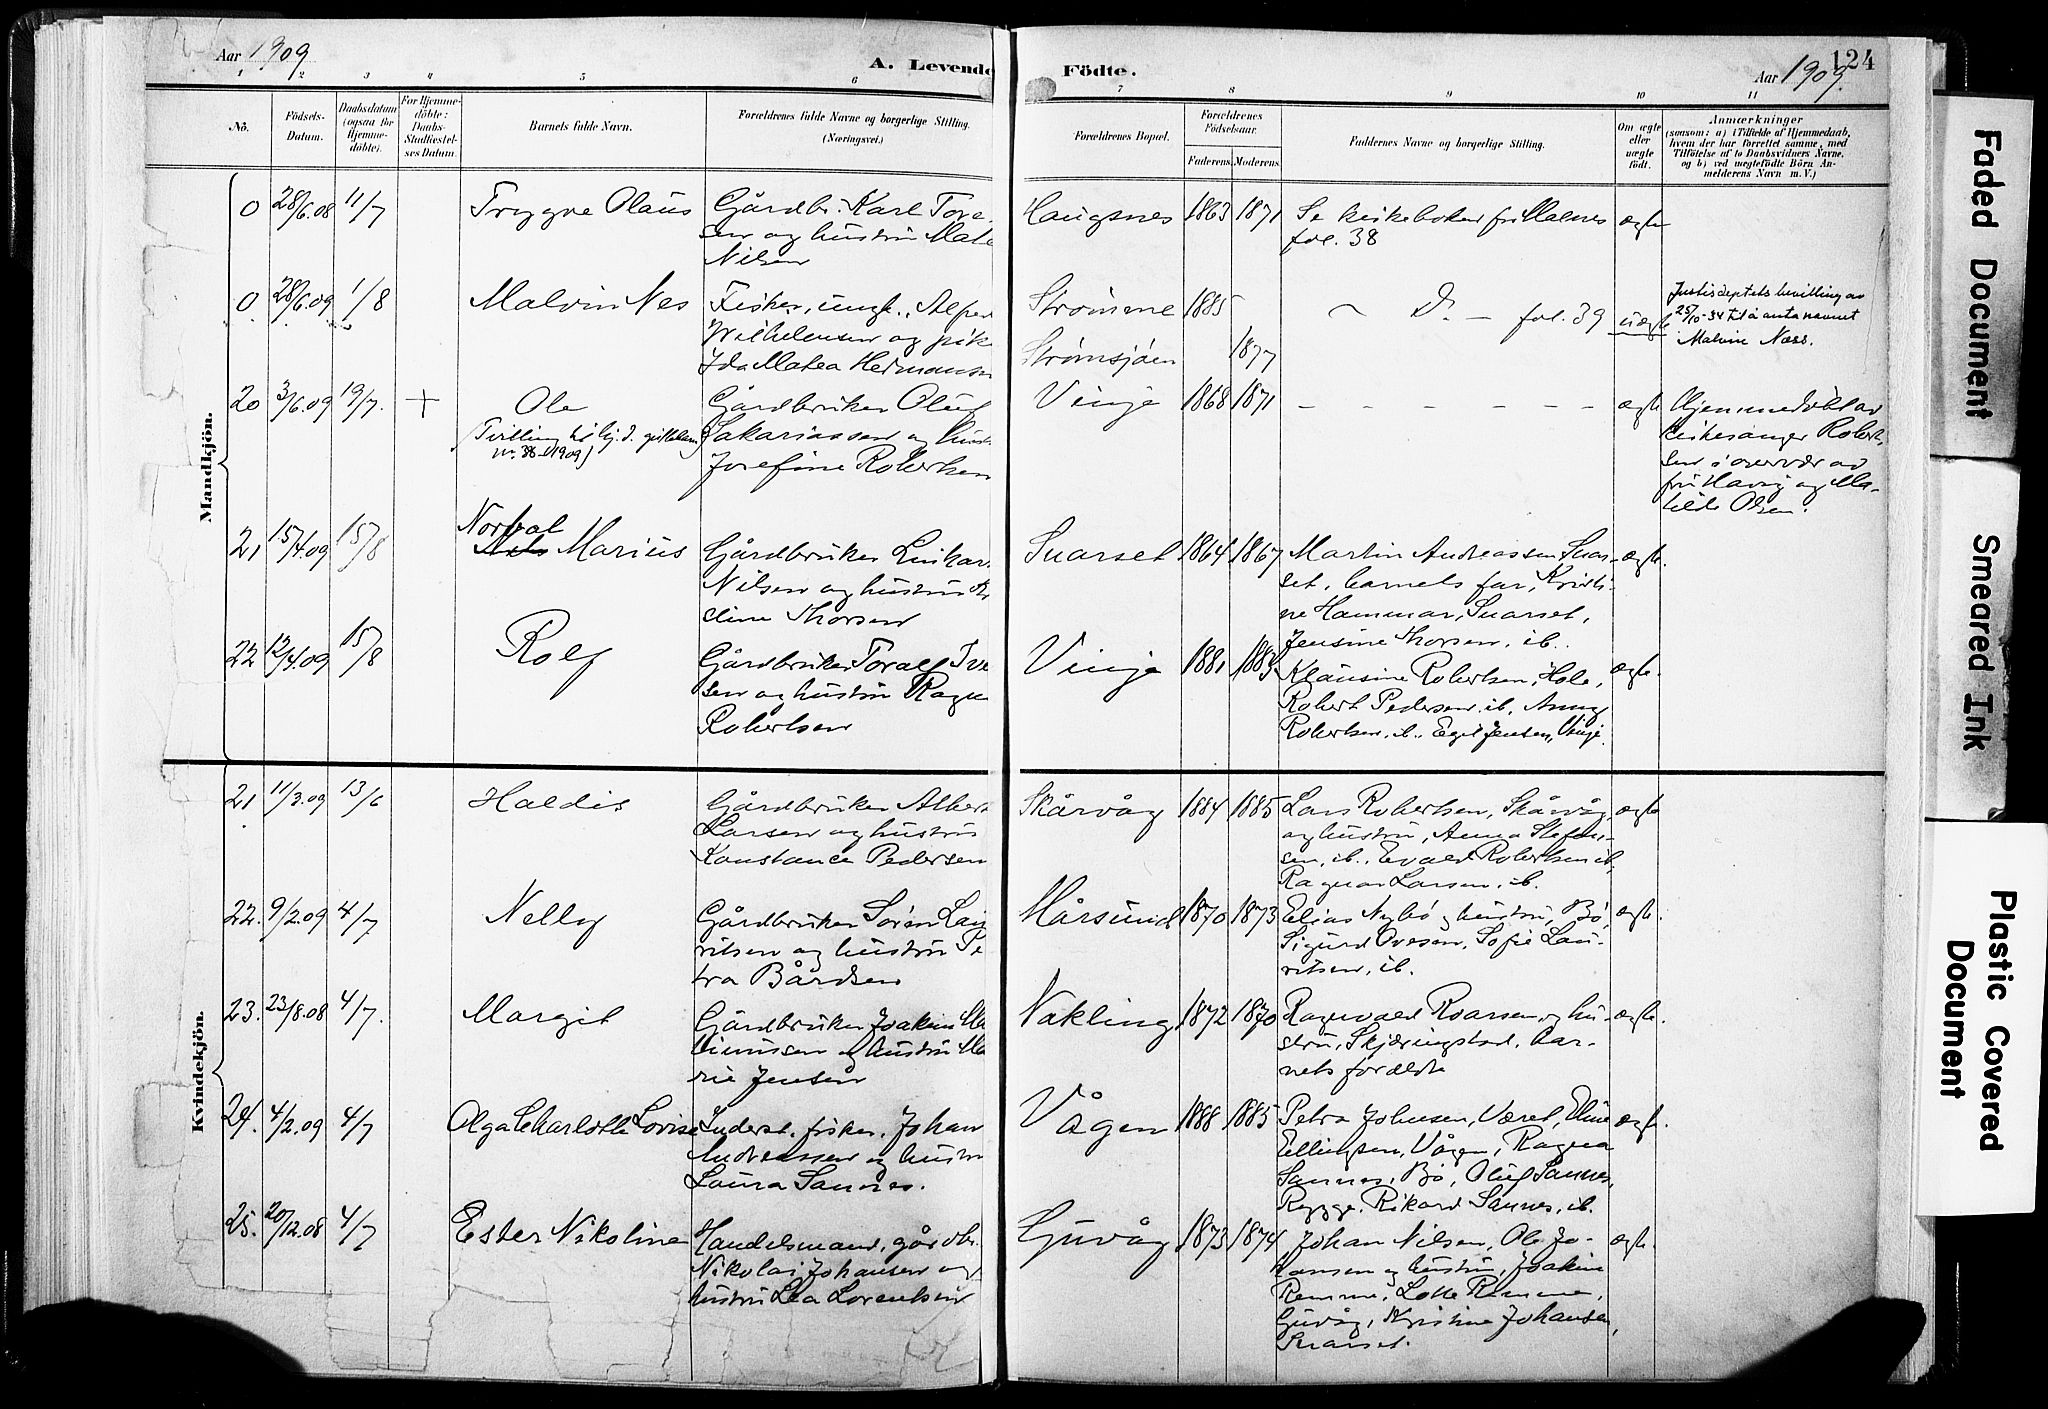 Aar 1909
A. Levende Födte.
Aar 1909.
124
1 2 3 4 5 6 7 8 9 10 11
Nö.
Födsels-
Datum.
Daabsdatum
(ogsaa for
Hjemme-
döbte).
For Hjemme-
döbte:
Daabs-
Stadfæstel-
ses Datum.
Barnets fulde Navn.
Forældrenes fulde Navne og borgerlige Stilling.
(Næringsvei.)
Forældrenes Bopæl.
Forældrenes
Födselsaar.
Faderens. Moderens.
Faddernes Navne og borgerlige Stilling.
Om ægte
eller
uægte
födt.
Anmærkninger
(saasom: a) i Tilfælde af Hjemmedaab,
hvem der har forrettet samme, med
Tilföielse af to Daabsvidners Navne,
og b) ved uægtefödte Börn An-
melderens Navn m. V.)
Mandkjön.
0 28/6.08 11/7 Trygve Olaus Gårdbr. Karl Tore-
sen og hustru
Nilsen
Haugsnes 1863 1871 Se kirkeboken for Malnes
fol. 38
ægte
0. 28/6.09 1/8 Malvin Nes Fisker, ungk.,
Wilhelmsen og pike
Ida Matea Hermansen
Strømme 1885
Strømsjøen 1877
~ D. – fol. 39 uægte
Justisdeptets bevilling av
25/10-34 til å anta navnet
Malvin Næss.
20 3/6.09 19/7. + Ole
nr. 38-1909)
Gårdbruker Oluf
Sakariassen og hust
Josefine Robertsen
Vinje 1868 1871 – – – – – – ægte
Hjemmedøbt av
kirkesanger Robert-
sen i overvær av
fru Havig og Ma-
tilde Olsen.
21 15/4.09 15/8 Norval
Marius
Gårdbruker
Nilsen og hustru
dine Thorsen
Suarset 1864 1867 Martin Andreassen Suar-
set, barnets far, Kristi-
ne Hammar, Suarset,
Jensine Thorsen, ib..
ægte.
22 12/4.09 15/8 Rolf
Gårdbruker Toralf Ive
sen og hustru Ragna
Robertsen
Vinje 1881 1883 Klausine Robertsen, Hole,
Robert Pedersen ib. Anny
Robertsen, ib., Egil Jensen, Vinje.
ægte.
Kvindekjön.
21 11/3.09 13/6 Haldis
Gårdbruker Albert
Larsen og hustru
Konstance Pedersen
Skårvåg 1884 1885 Lars Robertsen, Skårvåg,
og hustru, Anna Stefan-
sen, ib., Evald Robertsen ib,
Ragnar Larsen, ib.
ægte
22. 9/2.09 4/7 Nelly
Gårdbruker Søren Lau
ritsen og hustru Pe
tra Bårdsen
Mårsund 1870 1873 Elias Nybø og hustru, Bø,
Sigurd Ovesen, Sofie Lau-
ritsen, ib.
ægte.
23. 23/8.08 4/7. Margit
Gårdbruker Joakim Ma
thinussen og hustru Ma
rie Jensen
Nakling 1872 1870 Ragnvald Roarsen og hu-
stru, Skjæringstad, bar-
nets forældre
ægte.
24. 4/2.09 4/7 Olga Charlotte Lovise
Inderst. fisker. Johan
Andreassen og hustru
Laura Sannes.
Vågen 1888 1885 Petra Johnsen, Været, Eline
Ellingsen, Vågen, Ragna
Sannes, Bø, Oluf Sannes,
Rygge, Rikard Sannes, ib.
ægte.
25. 20/12.08 4/7 Ester Nikoline
Handelsmand, gårdbr.
Nikolai Johansen og
hustru Lea Lorentsen
Guvåg 1873 1874 Johan Nilsen, Ole Jo-
hansen og hustru, Joakim
Remme, Lotte Remme,
Guvåg, Kristine Johansen,
Suarset.
ægte.
Faded Document
Smeared Ink
Plastic Covered
Document